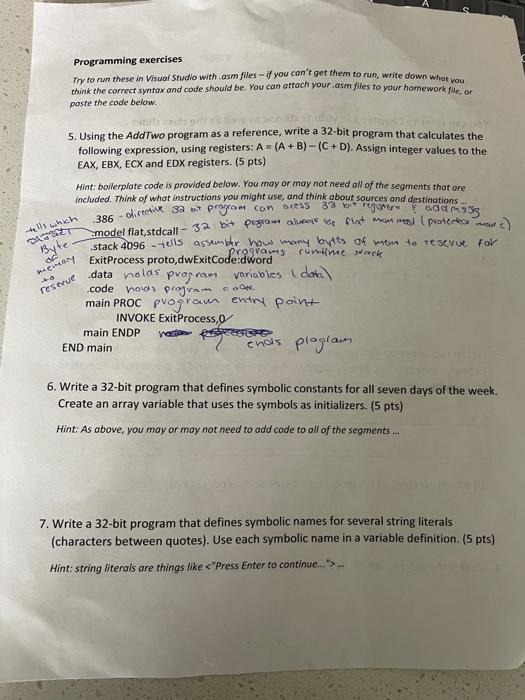 Programming exercises
Try to run these in Visual Studio with .asm files – if you can't get them to run, write down what you
think the correct syntax and code should be. You can attach your .asm files to your homework file, or
paste the code below.
5. Using the AddTwo program as a reference, write a 32-bit program that calculates the
following expression, using registers: A = (A + B) – (C + D). Assign integer values to the
EAX, EBX, ECX and EDX registers. (5 pts)
Hint: boilerplate code is provided below. You may or may not need all of the segments that are
included. Think of what instructions you might use, and think about sources and destinations ...
.386 - directive 32 bit program can access 32 bit register & address
tells which
.model flat,stdcall - 32 bit program always use flat mem (protected
Byte
of
memory
to
reserve
.stack 4096 - tells how many bytes of mem to reserve for
programs runtime stack
ExitProcess proto,dwExitCode:dword
.data holds program variables (data)
.code holds program code
main PROC program entry point
INVOKE ExitProcess,0
main ENDP
ends
END main
6. Write a 32-bit program that defines symbolic constants for all seven days of the week.
Create an array variable that uses the symbols as initializers. (5 pts)
Hint: As above, you may or may not need to add code to all of the segments ...
7. Write a 32-bit program that defines symbolic names for several string literals
(characters between quotes). Use each symbolic name in a variable definition. (5 pts)
Hint: string literals are things like <"Press Enter to continue..."> ...